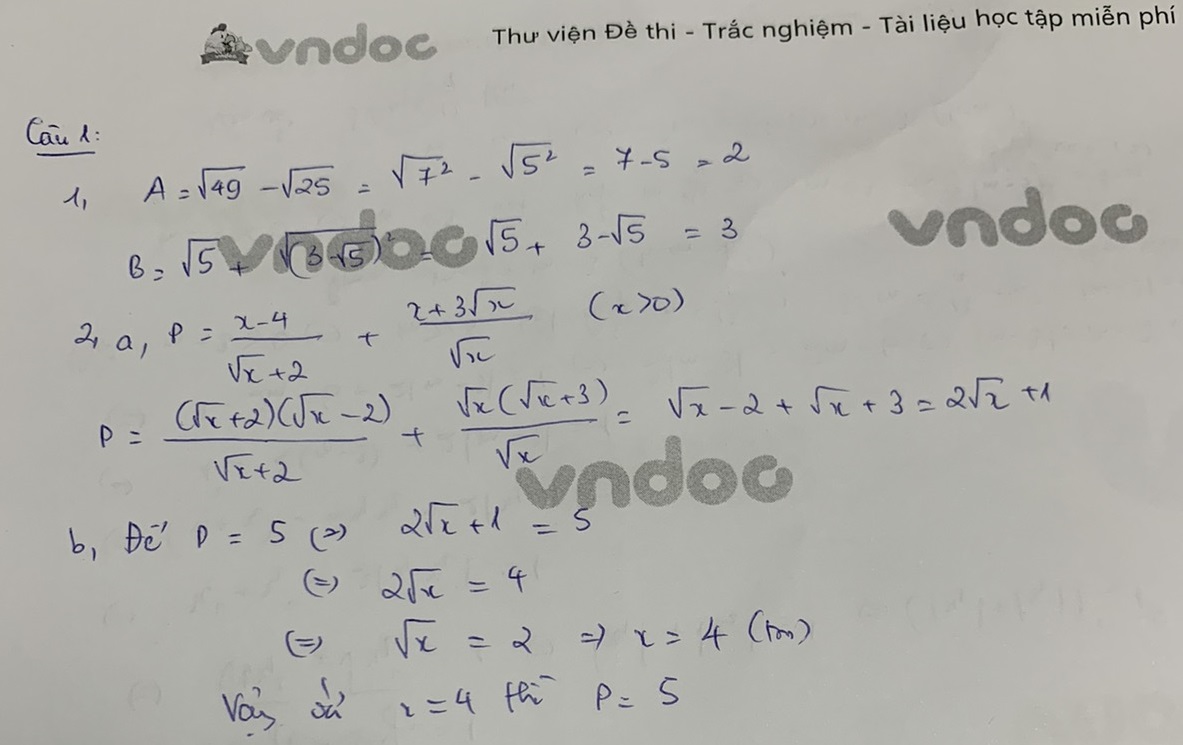 vndoc Thư viện Đề thi - Trắc nghiệm - Tài liệu học tập miễn phí
Câu 1:
1, A = √49 - √25 = √7² - √5² = 7-5 = 2
vndoc
B = √5 + √(3-√5)² = √5 + 3-√5 = 3
vndoc
2, a, P = (x-4)/(√x+2) + (x+3√x)/√x (x>0)
P = (√x+2)(√x-2)/(√x+2) + √x(√x+3)/√x = √x-2+√x+3 = 2√x+1
vndoc
b, Để P = 5 (=) 2√x+1 = 5
(=) 2√x = 4
(=) √x = 2 => x = 4 (tm)
Vậy x=4 thì P = 5